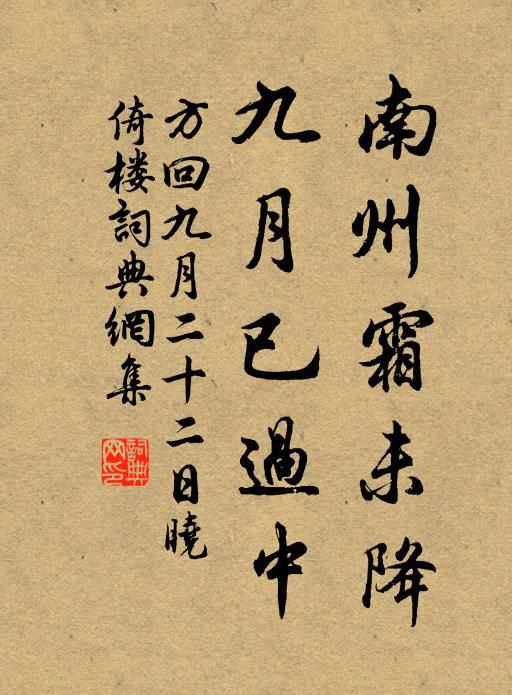 南州霜未降
九月已過中
方回九月二十二日曉
倚楼詞典網集
詞典网印